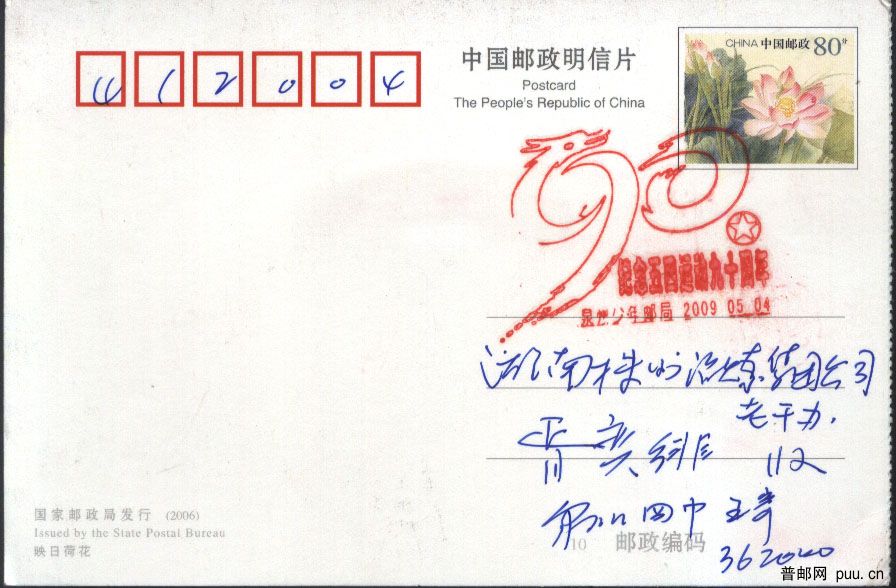 412004
中国邮政明信片
Postcard
The People's Republic of China
CHINA 中国邮政 80分
90
纪念五四运动九十周年
泉州少年邮局 2009 05 04
湖南株州冶炼集团公司
老干办.
收
四中 王
362000
国家邮政局发行 (2006)
Issued by the State Postal Bureau
映日荷花
10 邮政编码
普邮网 puu.cn